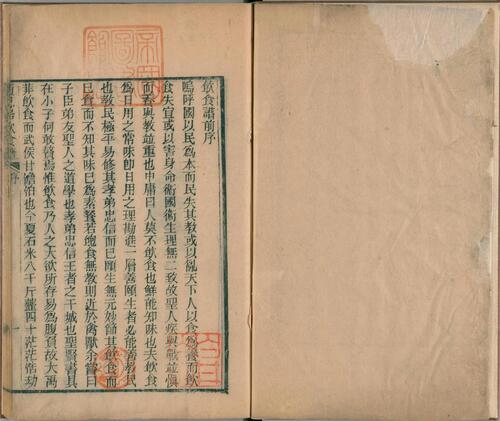 飲食譜前序
嗚呼國以民為本而民失其教或以亂天下人以食為養而飲
食失宜或以害身命衛國衛生理無二致故聖人疾與戰並慎
而養與教並重也中庸曰人莫不飲食也鮮能知味也夫飲食
為日用之常味即日用之理勘進一層善頤生者必能善教民
也教民極平易修其孝弟忠信而已頤生無元妙節其飲食而
已食而不知其味已為素餐若飽食無教則近於禽獸余嘗曰
子臣弟友聖人之道學也孝弟忠信王者之干城也聖賢書具
在小子何敢贅焉惟飲食乃人之大欲所存易為腹負故大禹
菲飲食而武侯甘澹泊也今夏石米八千斤虀四十茫茫浩劫
飲食譜
序
帝國圖